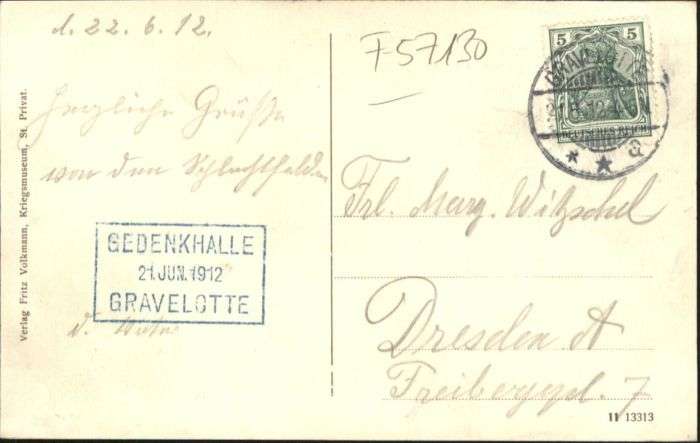 d. 22. 6. 12.
Herzliche Grüße
von den Schlachtfeldern
GEDENKHALLE
21. JUN. 1912
GRAVELOTTE
d.
Verlag Fritz Volkmann, Kriegsmuseum, St. Privat.
F 57130
5 5
DEUTSCHES REICH
GRAVELOTTE
* * a
Frl. Marg. Witzschel
Dresden A
7
11 13313